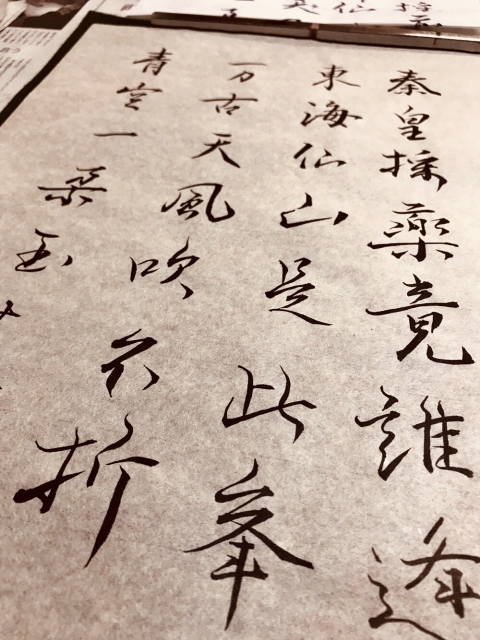 秦皇採藥竟誰逢
東海仙山是此峯
万古天風吹不折
青空一朶玉